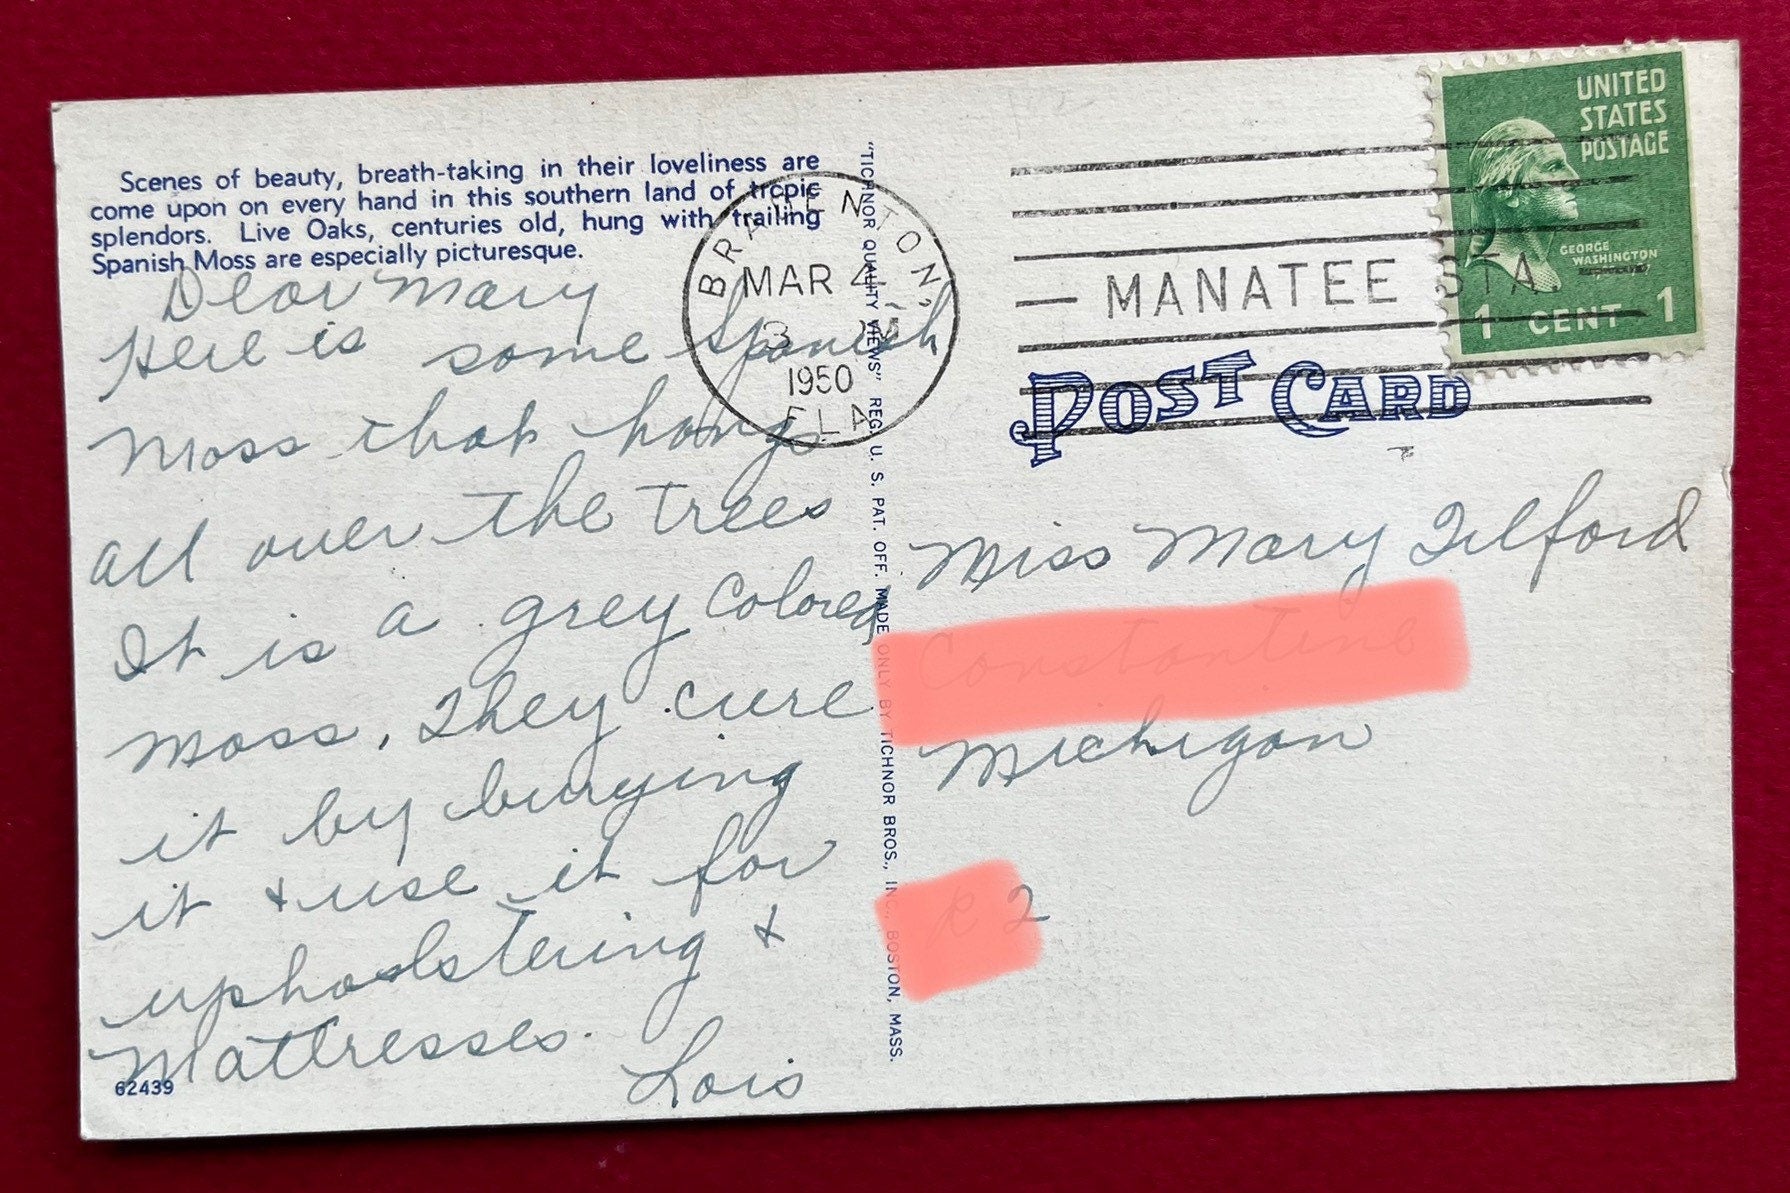 Scenes of beauty, breath-taking in their loveliness are
come upon on every hand in this southern land of tropic
splendors. Live Oaks, centuries old, hung with trailing
Spanish Moss are especially picturesque.
Dear Mary
Here is some Spanish
Moss that hangs
all over the trees
It is a grey colored
moss, They cure
it by burying
it & use it for
upholstering &
Mattresses.
Lois
62439
"TICHNOR QUALITY VIEWS" REG. U. S. PAT. OFF. MADE ONLY BY TICHNOR BROS., INC., BOSTON, MASS.
BRADENTON,
MAR 4
3 PM
1950
FLA.
MANATEE STA.
UNITED
STATES
POSTAGE
GEORGE
WASHINGTON
1 CENT 1
POST CARD
Miss Mary Tilford
Constantine
Michigan
R 2